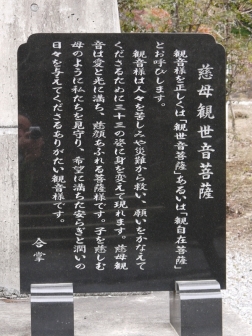 慈母観世音菩薩
観音様を正しくは「観世音菩薩」あるいは「観自在菩薩」
とお呼びします。
観音様は人々を苦しみや災難から救い、願いをかなえて
くださるために三十三の姿に身を変えて現れます。慈母観
音は愛と光に満ち、慈顔あふれる菩薩様です。子を慈しむ
母のように私たちを見守り、希望に満ちた安らぎと潤いの
日々を与えてくださるありがたい観音様です。
合掌